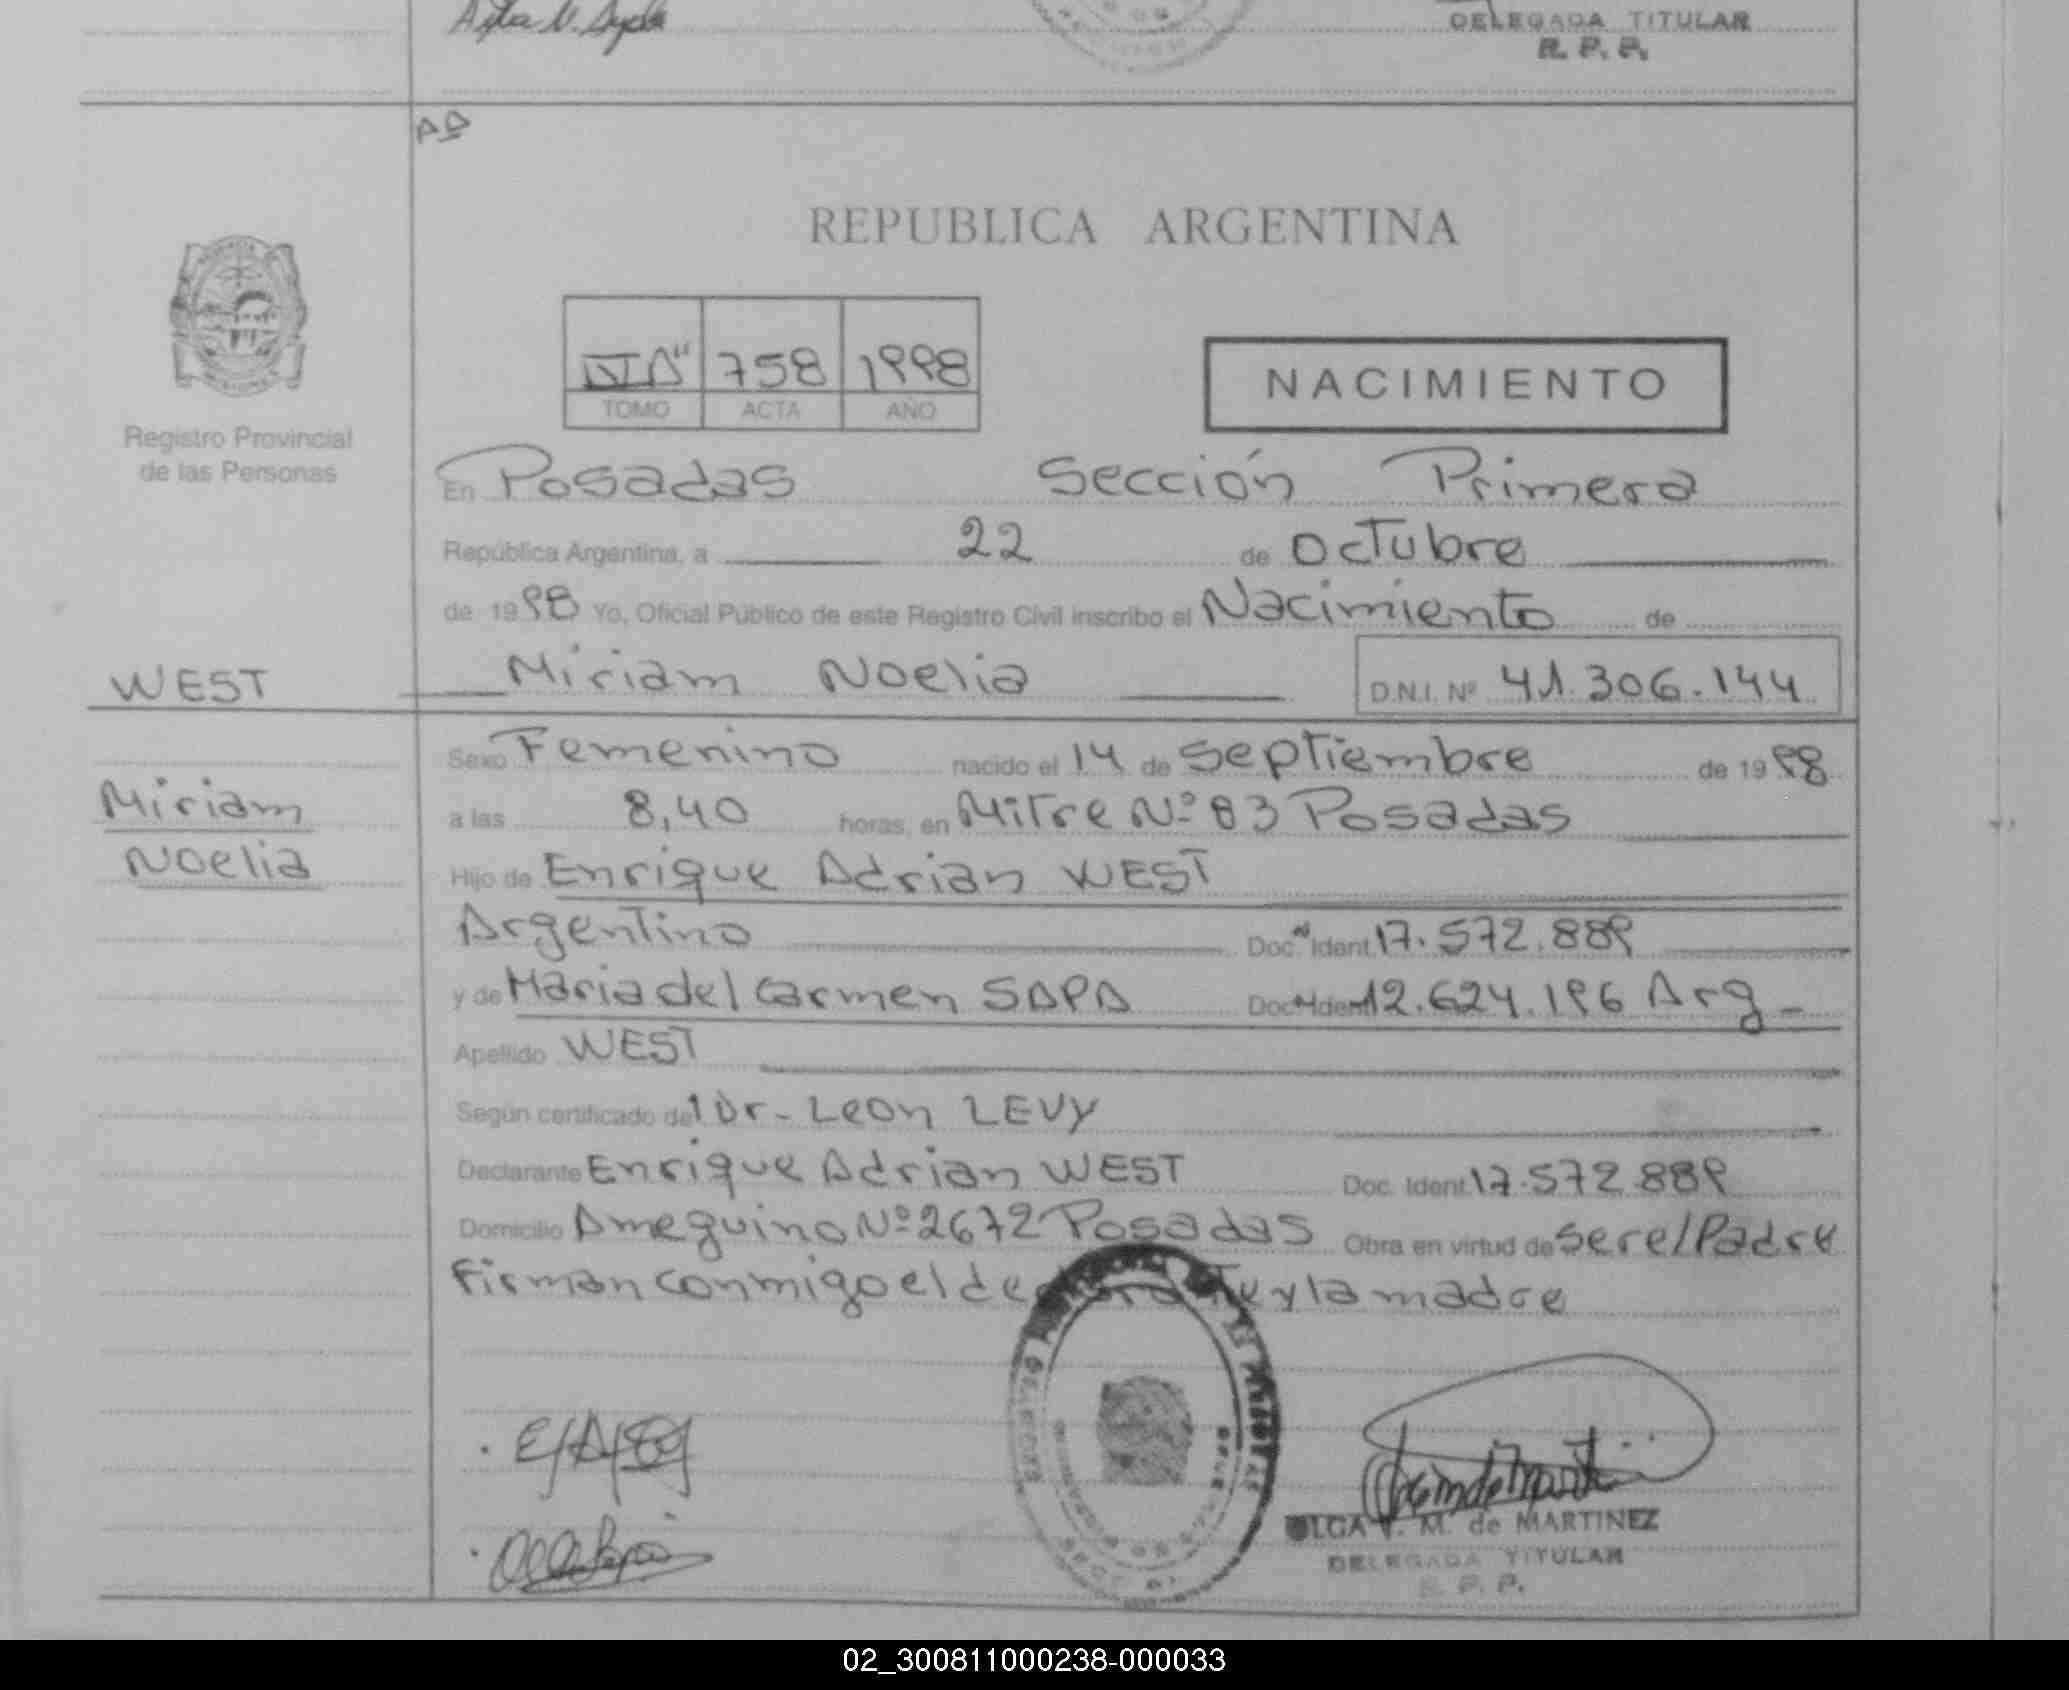 DELEGADA TITULAR
R. P. P.
REPUBLICA ARGENTINA
758 1998
TOMO ACTA AÑO
NACIMIENTO
Registro Provincial
de las Personas
En Posadas Sección Primera
República Argentina, a 22 de Octubre
de 1998 Yo, Oficial Público de este Registro Civil inscribo el Nacimiento de
WEST Miriam Noelia D.N.I. Nº 41.306.144
Sexo Femenino nacido el 14 de Septiembre de 1998
Miriam
a las 8,40 horas, en Mitre Nº 83 Posadas
Noelia
Hijo de Enrique Adrian WEST
Argentino Doc. Ident. 17.572.889
y de Maria del Carmen SAPA Doc. Ident. 12.624.196 Arg_
Apellido WEST
Según certificado del Dr- Leon LEVY
Declarante Enrique Adrian WEST Doc. Ident. 17.572.889
Domicilio Ameguino Nº 2672 Posadas Obra en virtud de ser el Padre
Firman conmigo el declarante y la madre
OLGA V. M. de MARTINEZ
DELEGADA TITULAR
R. P. P.
02_300811000238-000033